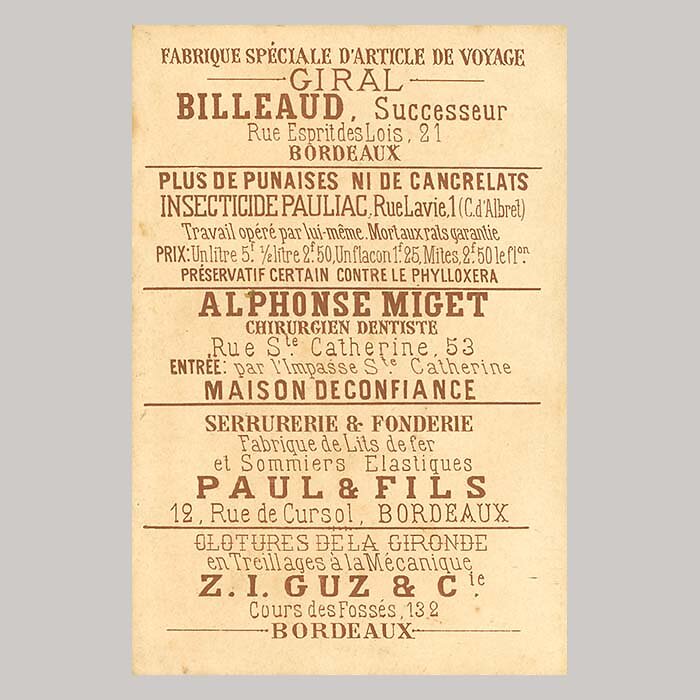 FABRIQUE SPÉCIALE D'ARTICLE DE VOYAGE
GIRAL
BILLEAUD, Successeur
Rue Esprit des Lois, 21
BORDEAUX
PLUS DE PUNAISES NI DE CANCRELATS
INSECTICIDE PAULIAC, Rue Lavie, 1 (C. d'Albret)
Travail opéré par lui-même. Mort aux rats garantie
PRIX: Un litre 5f. ½ litre 2f50, Un flacon 1f25, Mites, 2f50 le flon
PRÉSERVATIF CERTAIN CONTRE LE PHYLLOXERA
ALPHONSE MIGET
CHIRURGIEN DENTISTE
Rue Ste Catherine, 53
ENTRÉE: par l'Impasse Ste Catherine
MAISON DE CONFIANCE
SERRURERIE & FONDERIE
Fabrique de Lits de fer
et Sommiers Elastiques
PAUL & FILS
12, Rue de Cursol, BORDEAUX
CLOTURES DE LA GIRONDE
en Treillages à la Mécanique
Z. I. GUZ & Cie
Cours des Fossés, 132
BORDEAUX